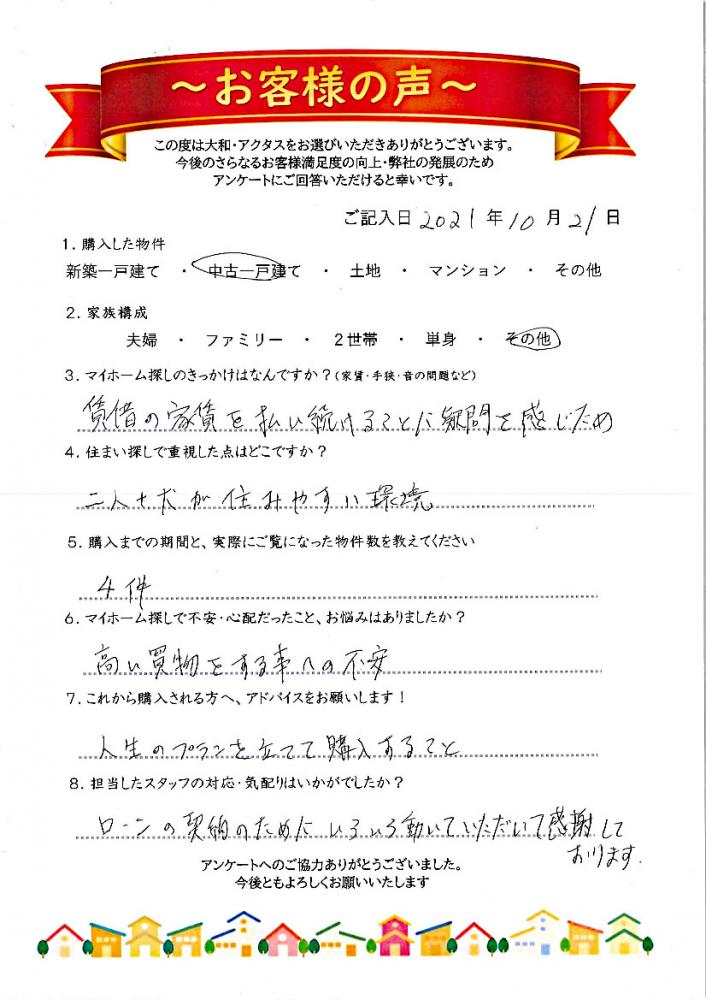 ～お客様の声～
この度は大和・アクタスをお選びいただきありがとうございます。
今後のさらなるお客様満足度の向上・弊社の発展のため
アンケートにご回答いただけると幸いです。
ご記入日 2021 年 10 月 21 日
1．購入した物件
新築一戸建て ・ 中古一戸建て ・ 土地 ・ マンション ・ その他
2．家族構成
夫婦 ・ ファミリー ・ 2世帯 ・ 単身 ・ その他
3．マイホーム探しのきっかけはなんですか？（家賃・手狭・音の問題など）
賃借の家賃を払い続けることに疑問を感じため
4．住まい探しで重視した点はどこですか？
二人＋犬が住みやすい環境
5．購入までの期間と、実際にご覧になった物件数を教えてください
4件
6．マイホーム探しで不安・心配だったこと、お悩みはありましたか？
高い買物をする事への不安
7．これから購入される方へ、アドバイスをお願いします！
人生のプランを立てて購入すること
8．担当したスタッフの対応・気配りはいかがでしたか？
ローンの契約のためにいろいろ動いていただいて感謝して
おります.
アンケートへのご協力ありがとうございました。
今後ともよろしくお願いいたします